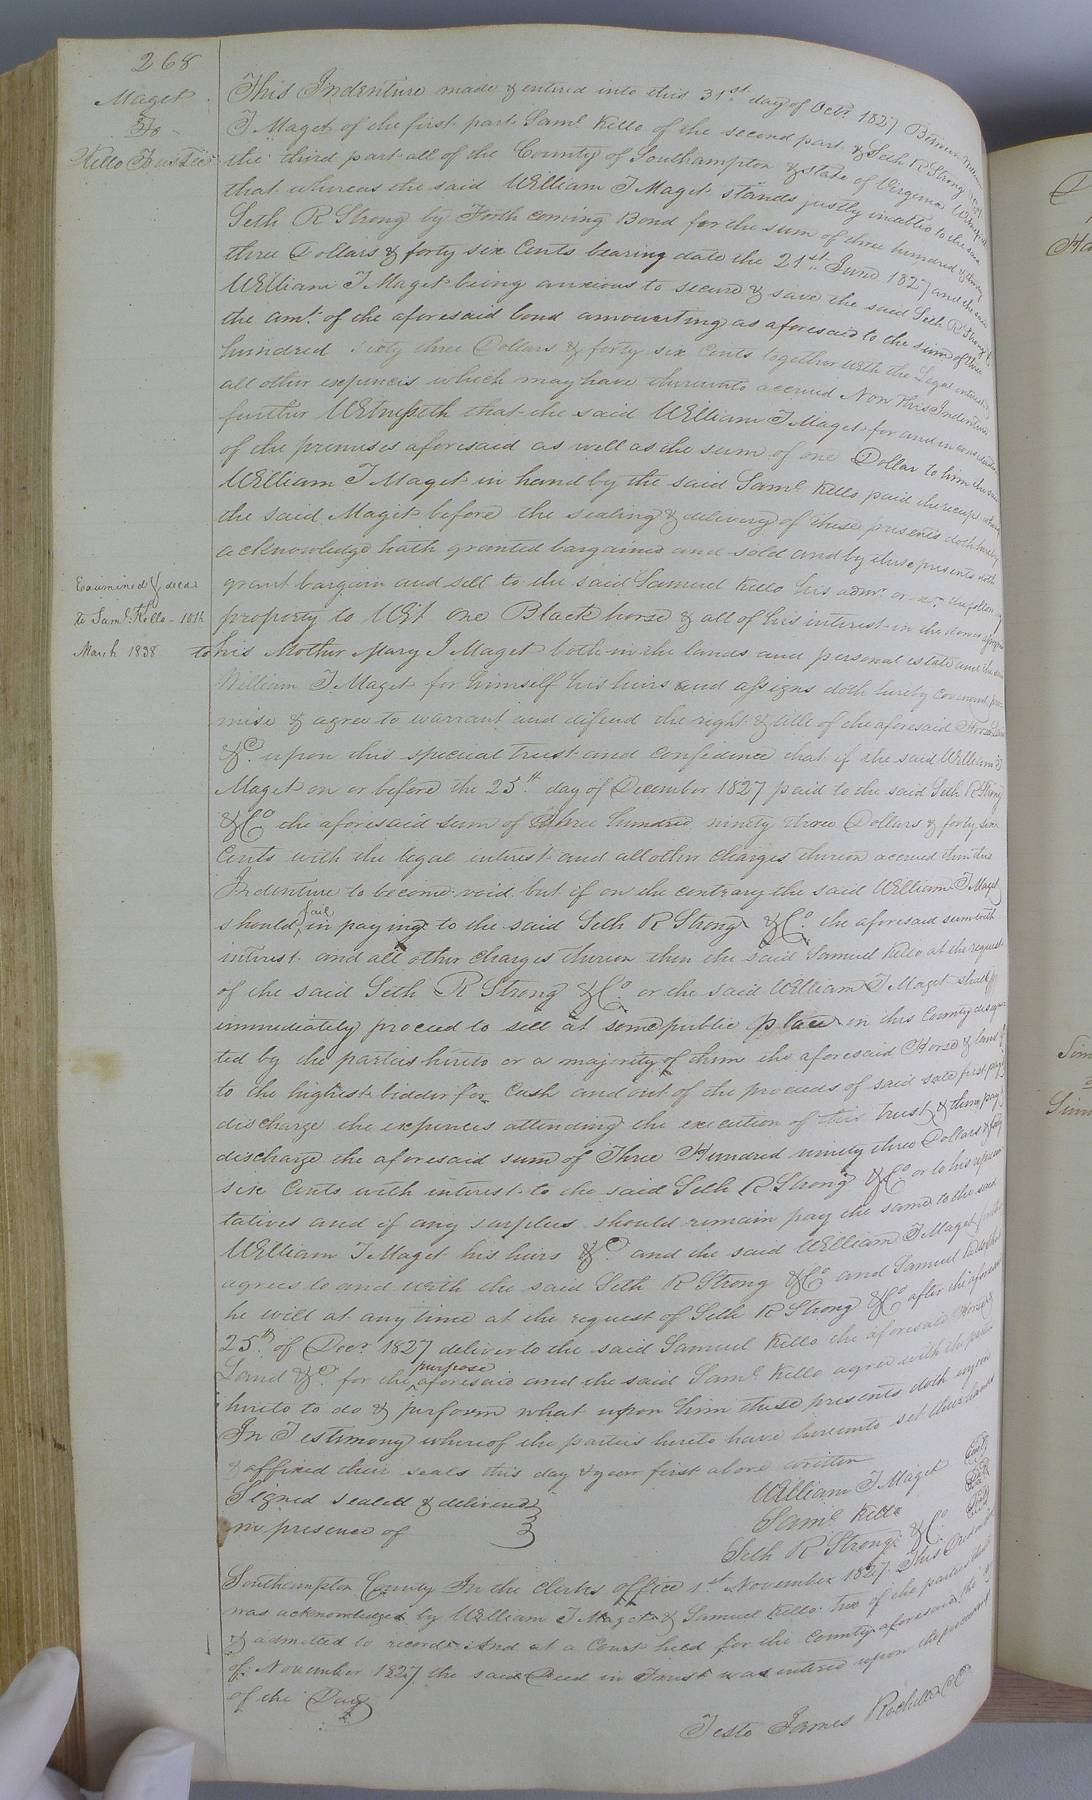 268
Maget
To
Kello Trustee
This Indenture made & entered into this 31st day of Octr 1827 Between William
T Maget of the first part Saml Kello of the second part & Seth R Strong
the third part all of the County of Southampton & State of Virginia Witnesseth
that whereas the said William T Maget stands justly indebted to the said
Seth R Strong by Forth coming Bond for the sum of three hundred & ninety
three Dollars & forty six Cents bearing date the 21st June 1827 and the said
William T Maget being anxious to secure & save the said Seth R Strong
the amt. of the aforesaid bond amounting as aforesaid to the sum of three
hundred sixty three Dollars & forty six Cents together with the Legal interest
all other expences which may have thereunto accrued Now This Indenture
further Witnesseth that the said William T Maget for and in consideration
of the premises aforesaid as well as the sum of one Dollar to him the said
William T Maget in hand by the said Saml Kello paid the receipt whereof
the said Maget before the sealing & delivery of these presents doth hereby
acknowledge hath granted bargained and sold and by these presents doth
grant bargain and sell to the said Samuel Kello his admr. or exr. the following
Examined & deld
to Saml. Kello - 10th
March 1838
property to Wit One Black horse & all of his interest in the dower assigned
to his Mother Mary J Maget both in the lands and personal estate and the said
William T Maget for himself his heirs and assigns doth hereby covenant pro
mise & agree to warrant and difend the right & title of the aforesaid Horse Land
&C. upon this special trust and confidence that if the said William T
Maget on or before the 25th day of December 1827 paid to the said Seth R Strong
&Co the aforesaid sum of three hundred ninety three Dollars & forty six
Cents with the legal interest and all other charges thereon accrued then this
Indenture to become void but if on the contrary the said William T Maget
should fail in paying to the said Seth R Strong &Co. the aforesaid sum with
interest and all other charges thereon then the said Samuel Kello at the request
of the said Seth R Strong &Co. or the said William T Maget shall
immediately proceed to sell at some public place in this County designa
ted by the parties hereto or a majority of them the aforesaid Horse & land &c
to the highest bidder for Cash and out of the proceeds of said sale first pay &
discharge the expences attending the execution of this trust & then pay
discharge the aforesaid sum of Three Hundred ninety three Dollars & forty
six Cents with interest to the said Seth R Strong &Co or to his represen
tatives and if any surplus should remain pay the same to the said
William T Maget his heirs &C. and the said William T Maget further
agrees to and with the said Seth R Strong &Co and Samuel Kello that
he will at any time at the request of Seth R Strong &Co after the aforesaid
25th of Decr 1827 deliver to the said Samuel Kello the aforesaid Horse &
Land &C. for the purpose aforesaid and the said Saml Kello agree with the parties
hereto to do & perform what upon him these presents doth enjoin
In Testimony whereof the parties hereto have hereunto set their hands
& affixed their seals this day & year first above written
Signed sealed & delivered
in presence of
William T Maget Seal
Saml Kello Seal
Seth R Strong &Co. Seal
Southampton County In the Clerks office 1st November 1827. This Deed in trust
was acknowledged by William T Maget & Samuel Kello two of the parties thereto
& admitted to record. And at a Court held for the County aforesaid the
of November 1827 the said Deed in Trust was entered upon the proceedings
of the Day
Teste James Rochelle C C